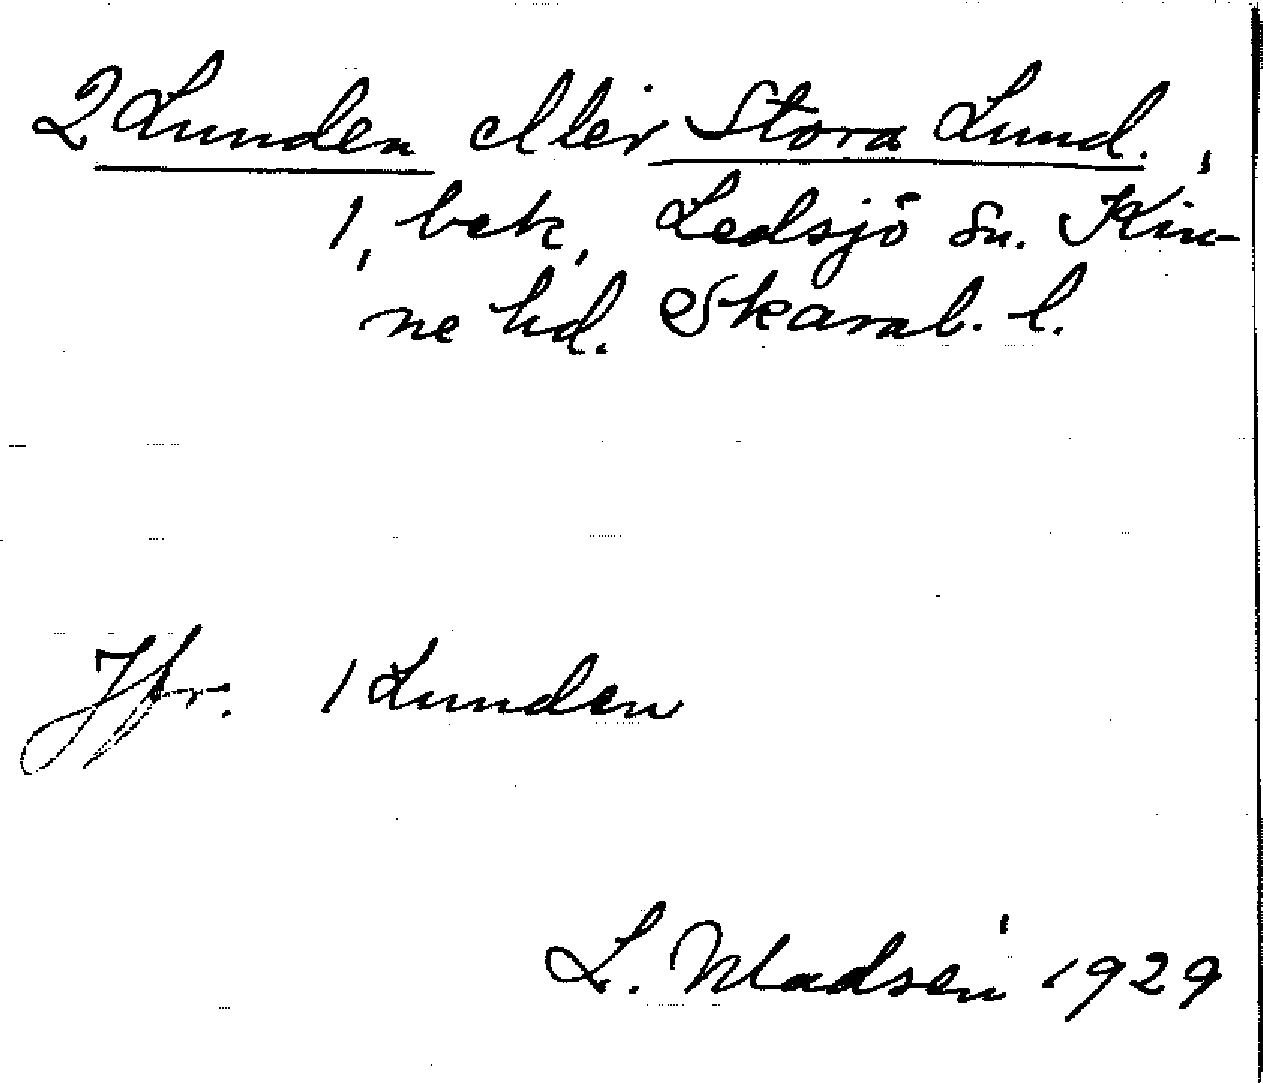 2 Lunden eller Stora Lund.,
1, bek, Ledsjö sn. Kin-
ne hd. Skarab. l.
Jfr. 1 Lunden
L. Madsén 1929